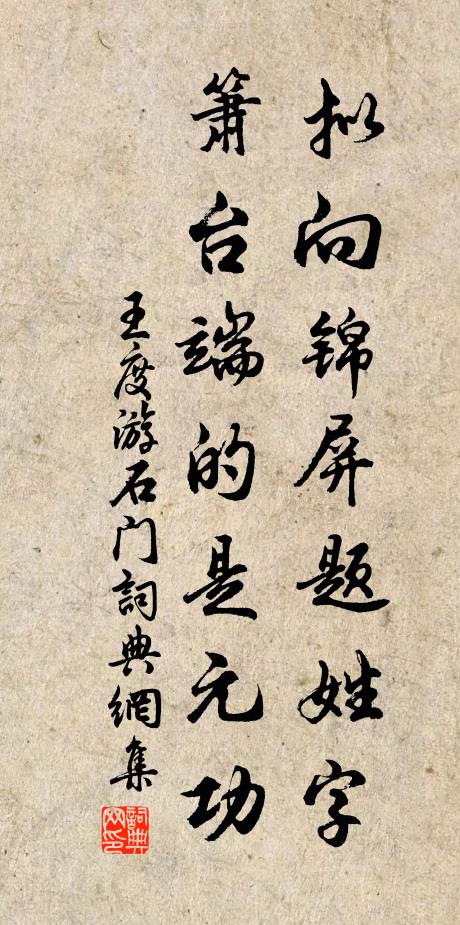 拟向锦屏题姓字
箫台端的是元功
王度游石门詞典網集
詞典网印